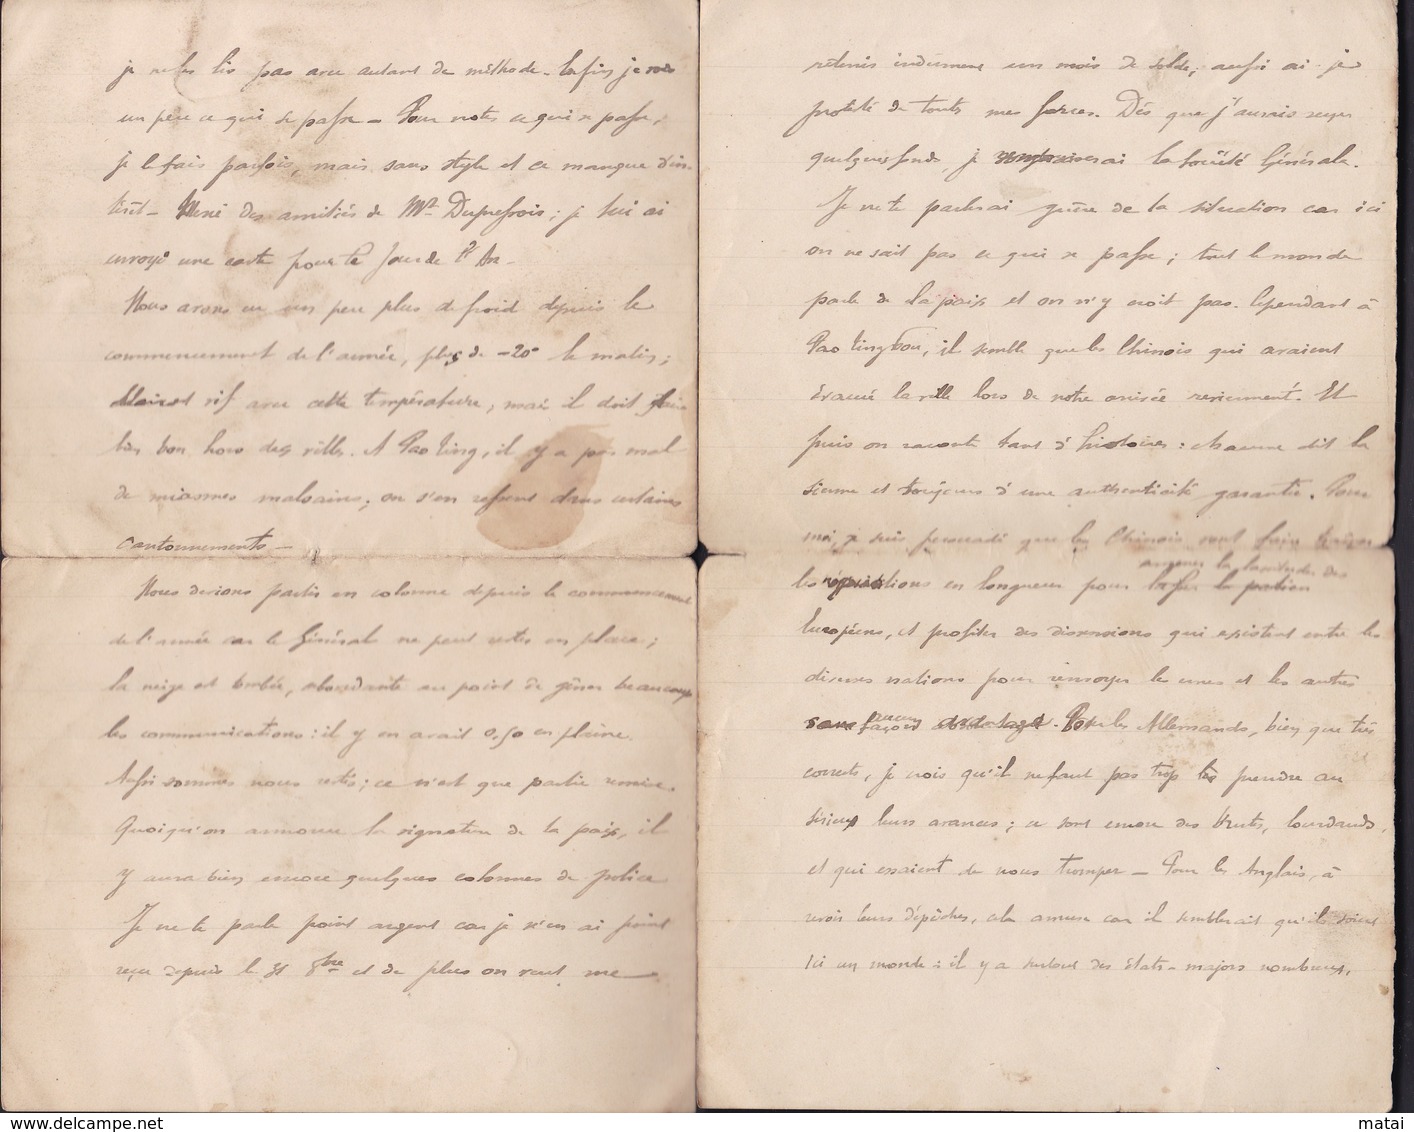 je ne les lis pas avec autant de méthode. Enfin je vois
un peu ce qui se passe — Pour noter ce qui se passe,
je le fais parfois, mais sans style et ce manque d'in-
térêt — des amitiés de Mr ; je lui ai
envoyé une carte pour le Jour de l'An —
Nous avons eu un peu plus de froid depuis le
commencement de l'année, plus de -20° le matin;
vif avec cette température, mais il doit faire
très bon hors des villes. A Pao Ting, il y a pas mal
de miasmes malsains; on s'en ressent dans certains
cantonnements —
Nous devions partir en colonne depuis le commencement
de l'année car le Général ne peut rester en place;
la neige est tombée, abondante au point de gêner beaucoup
les communications : il y en avait 0,50 en plaine.
Aussi sommes nous restés; ce n'est que partie remise.
Quoiqu'on annonce la signature de la paix, il
y aura bien encore quelques colonnes de police
Je ne te parle point argent car je n'en ai point
reçu depuis le 31 8bre et de plus on veut me
retenir indûment un mois de solde; aussi ai-je
protesté de toutes mes forces. Dès que j'aurais reçu
quelques fonds, je rembourserai la Société Générale.
Je ne te parlerai guère de la situation car ici
on ne sait pas ce qui se passe; tout le monde
parle de la paix et on n'y croit pas. Cependant à
Pao Ting Fou, il semble que les Chinois qui avaient
évacué la ville lors de notre arrivée reviennent. Et
puis on raconte tant d'histoires : chacun dit la
sienne et toujours d'une authenticité garantie. Pour
moi, je suis persuadé que les Chinois vont faire traîner
les négociations en longueur pour amener la lassitude des
Européens, et profiter des dissensions qui existent entre les
diverses nations pour renvoyer les unes et les autres
sans façon. Pour les Allemands, bien que très
corrects, je crois qu'il ne faut pas trop prendre au
sérieux leurs avances; ce sont encore des brutes, lourdauds,
et qui essaient de nous tromper — Pour les Anglais, à
voir leurs dépêches, cela amuse car il semblerait qu'ils soient
ici un monde : il y a surtout des états-majors nombreux,
delcampe.net
matai